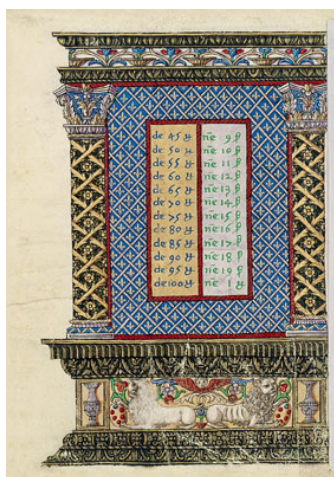 de 45 nē 9 β
de 50 nē 10 β
de 55 nē 11 β
de 60 nē 12 β
de 65 nē 13 β
de 70 nē 14 β
de 75 nē 15 β
de 80 nē 16 β
de 85 nē 17 β
de 90 nē 18 β
de 95 nē 19 β
de 100 nē 1